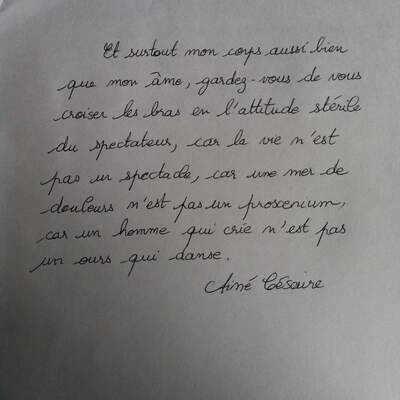 Et surtout mon corps aussi bien
que mon âme, gardez-vous de vous
croiser les bras en l'attitude stérile
du spectateur, car la vie n'est
pas un spectacle, car une mer de
douleurs n'est pas un proscenium,
car un homme qui crie n'est pas
un ours qui danse.
Aimé Césaire